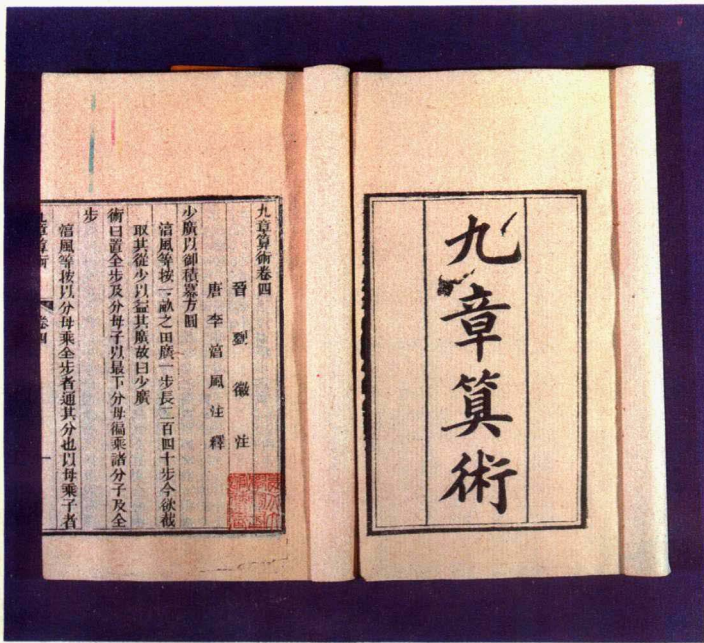 九章算術
九章算術卷四
晉劉徽注
唐李淳風注釋
少廣以御積冪方圓
淳風等按一畝之田廣一步長二百四十步今欲截
取其從少以益其廣故曰少廣
術曰置全步及分母子以最下分母徧乘諸分子及全
步
淳風等按以分母乘全步者通其分也以母乘子者
九章算術 卷四